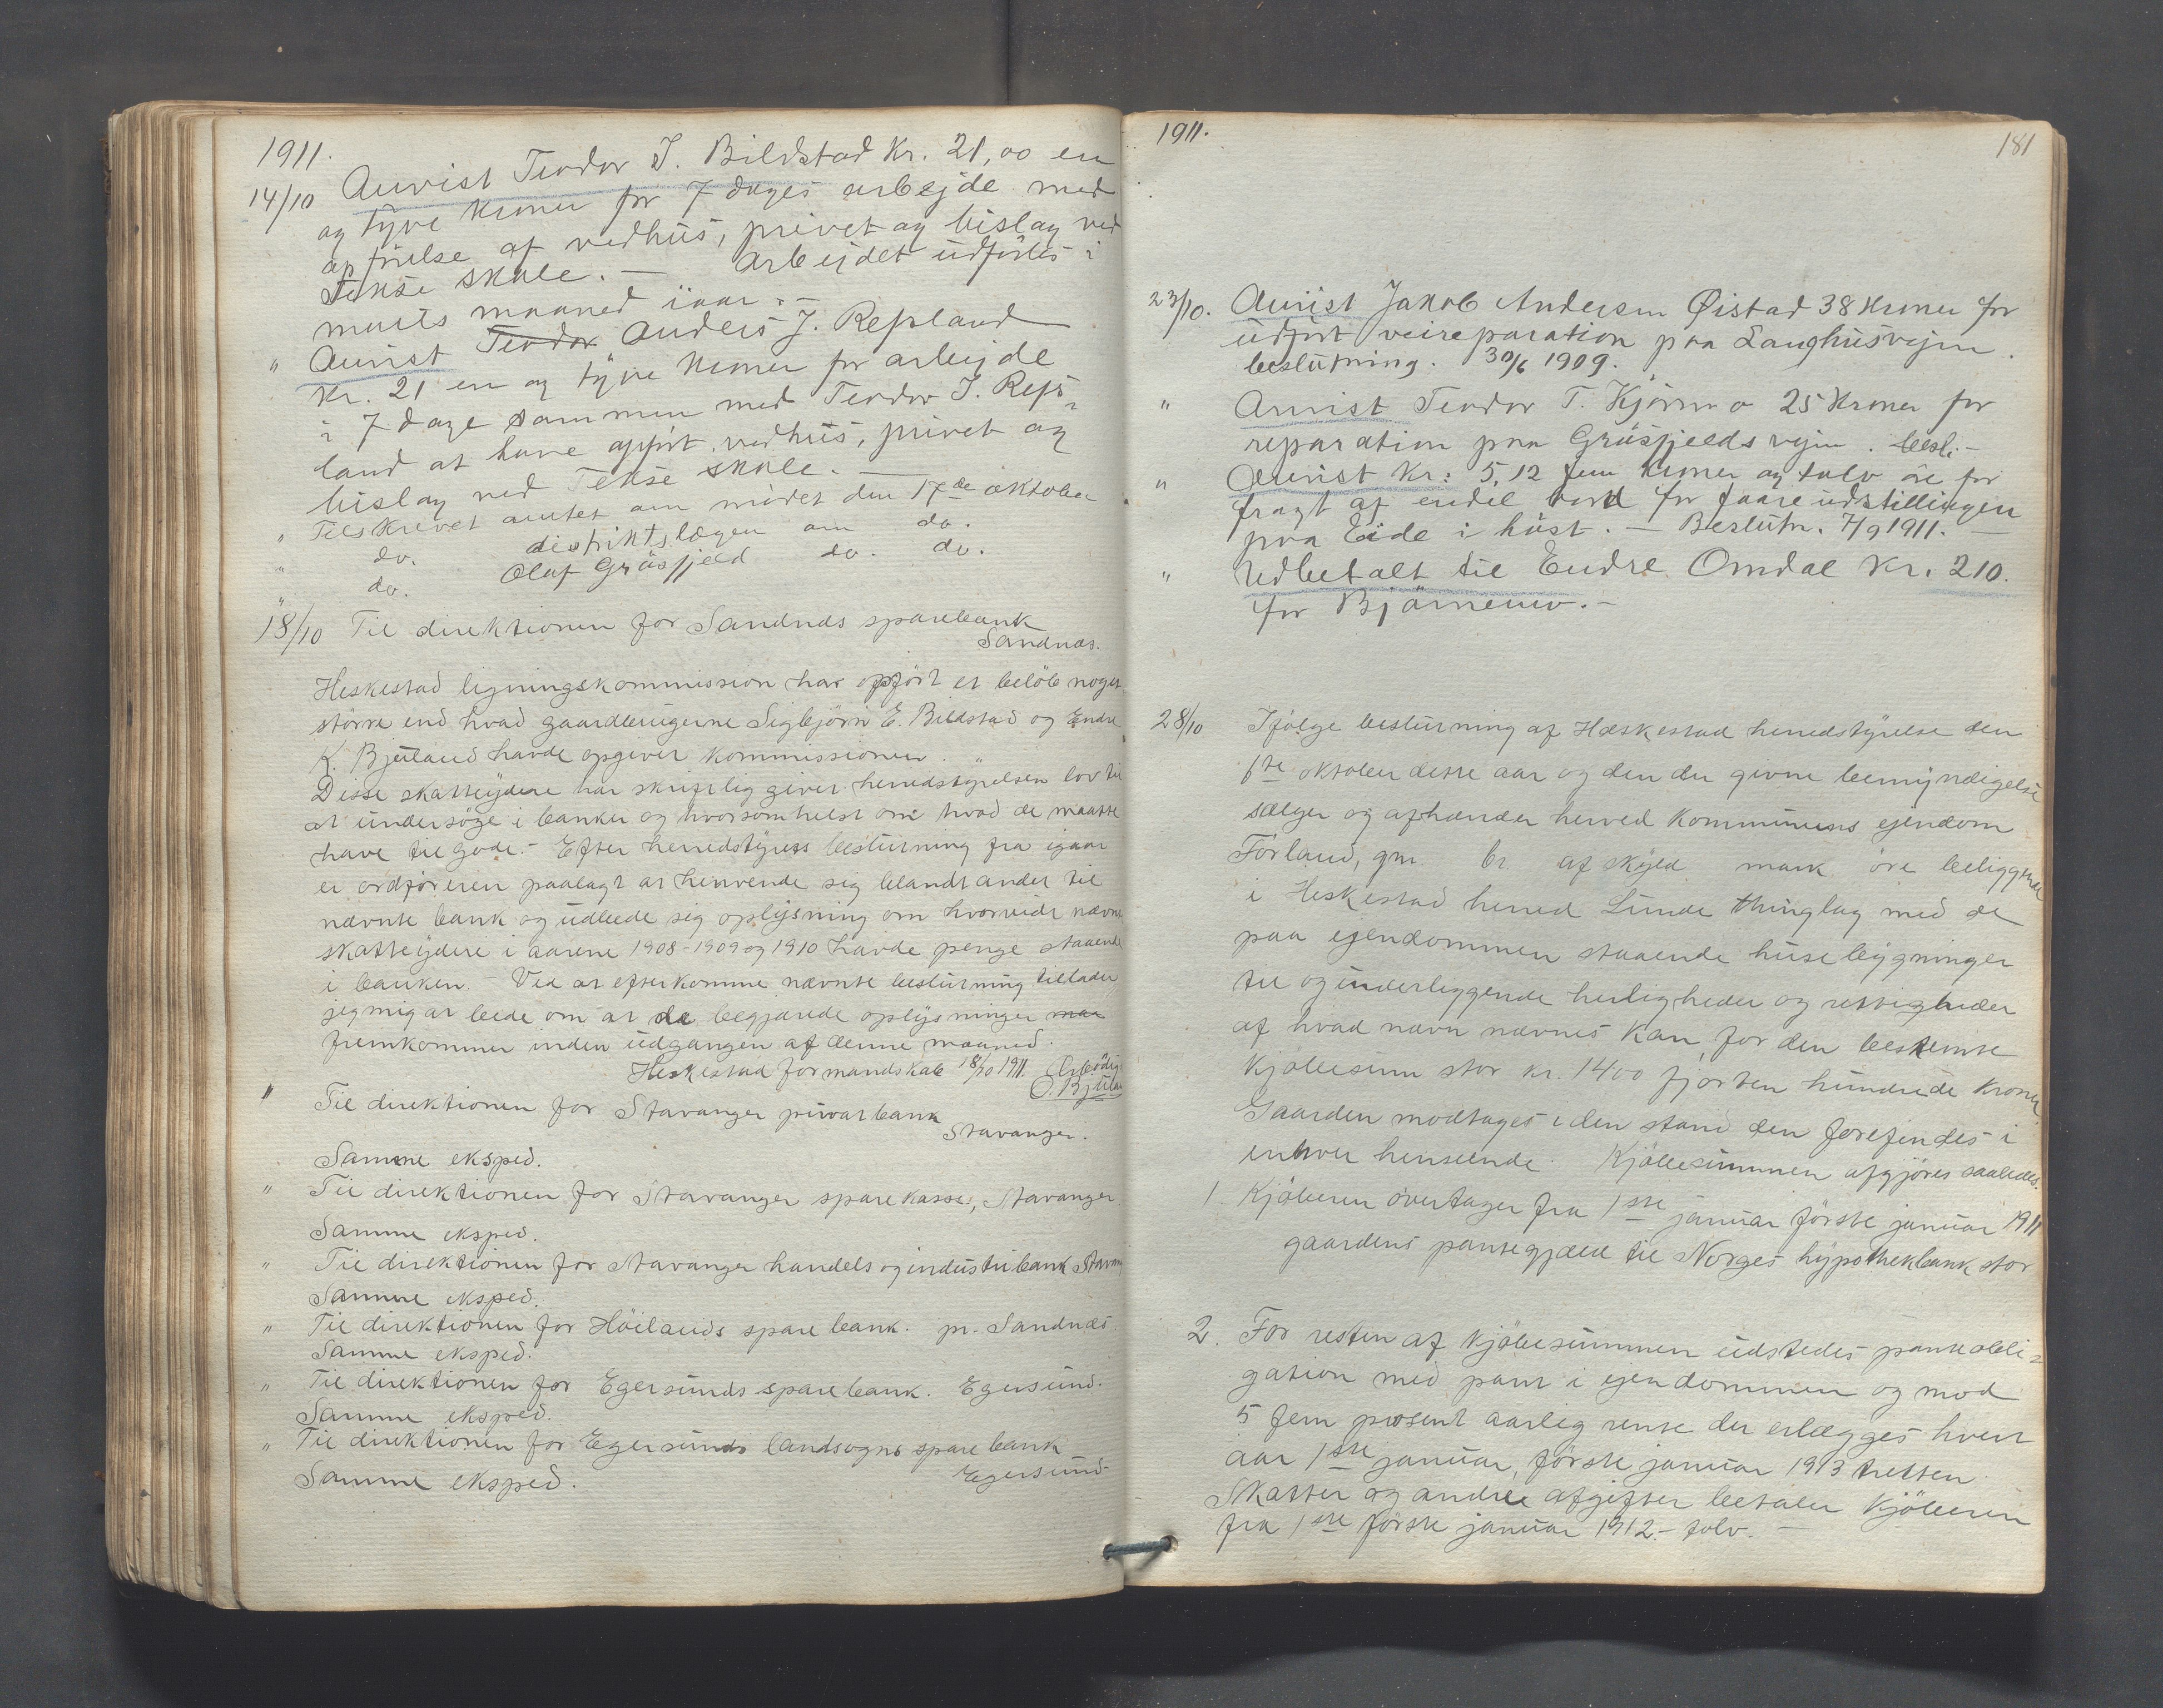 1911.
14/10 Anvist Teodor J. Bildstad Kr. 21,00 en
og tyve kroner for 7 dages arbejde med
opförelse af vedhus, privet og bislag ved
Tekse skole. — Arbejdet udförtes i
marts maaned iaar. —
" Anvist Teodor Anders J. Repsland
Kr. 21 en og tyve kroner for arbejde
i 7 dage sammen med Teodor J. Reps-
land at have opfört vedhus, privet og
bislag ved Tekse skole. —
" Tilskrevet amtet om mödet den 17de oktober
" do. distriktslægen om do.
" do. Olaf Gräsfjeld do. do.
18/10 Til direktionen for Sandnæs sparebank
Sandnæs.
Heskestad ligningskommission har opfört et belöb noget
större end hvad gaardbrugerne Sigbjörn E. Bildstad og Endre
K. Bjuland havde opgivet kommissionen.
Disse skatteydere har skriftlig givet herredstyrelsen lov til
at undersöge i banker og hvorsomhelst om hvad de maatte
have tilgode. - Efter herredstyrets beslutning fra igaar
er ordföreren paalagt at henvende sig blandt andet til
nævnte bank og udbede sig oplysning om hvorvidt nævnte
skatteydere i aarene 1908 - 1909 og 1910 havde penge staaende
i banken. - Ved at efterkomme nævnte beslutning tillader
jeg mig at bede om at de begjærede oplysninger maa
fremkommer inden udgangen af denne maaned.
Heskestad formandskab 18/10 1911 Ærbödigt
O. Bjuland
" Til direktionen for Stavanger privatbank
Stavanger.
Samme eksped.
" Til direktionen for Stavanger sparekasse, Stavanger
Samme eksped.
" Til direktionen for Stavanger handels og industribank Stavang
Samme eksped.
" Til direktionen for Höilands sparebank. pr. Sandnæs.
Samme eksped.
" Til direktionen for Egersunds sparebank. Egersund.
Samme eksped.
" Til direktionen for Egersunds landsogns sparebank
Egersund
Samme eksped.
1911.
181
23/10. Anvist Jakob Andersen Øistad 38 kroner for
udfört veireparation paa Langhusvejen.
beslutning. 30/6 1909.
" Anvist Teodor T. Kjörmo 25 Kroner for
reparation paa Gräsfjelds vejen. besl. -
" Anvist Kr: 5,12 fem kroner og tolv öre for
fragt af endel bord for faareudstillingen
paa Eide i höst. — Beslutn. 7/9 1911. —
" Udbetalt til Endre Omdal Kr. 210.
for Björnemo. -
28/10 Ifölge beslutning af Heskestad herredstyrelse den
6te oktober dette aar og den der givne bemyndigelse
sælger og afhænder herved Kommunens ejendom
Förland, gnr. br. af skyld mark öre beliggende
i Heskestad herred Lunde thinglag med de
paa ejendommen staaende huse bygninger
til og underliggende herligheder og rettigheder
af hvad navn nævnes kan, for den bestemte
kjöbesum stor kr. 1400 fjorten hundrede kroner
Gaarden modtages i den stand den forefindes i
enhver henseende. Kjöbesummen afgjöres saaledes.
1 Kjöberen overtager fra 1ste januar förste januar 1911
gaardens pantegjæld til Norges hypothekbank stor
2. For resten af kjöbesummen udstedes pantobli-
gation med pant i ejendommen og mod
5 fem prosent aarlig rente der erlægges hvert
aar 1ste januar, förste januar 1913 tretten
Skatter og andre afgifter betaler kjöberen
fra 1ste förste januar 1912. - tolv. —